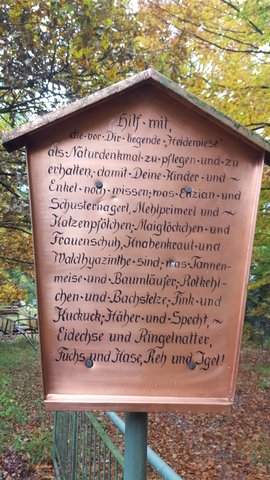 Hilf mit,
die vor Dir liegende „Heidewiese"
als Naturdenkmal zu pflegen und zu
erhalten, damit Deine Kinder und ~
Enkel noch wissen, was Enzian und
Schusternagerl, Mehlprimerl und ~
Katzenpfötchen, Maiglöckchen und
Frauenschuh, Knabenkraut und
Waldhyazinthe sind, was Tannen-
meise und Baumläufer, Rotkehl-
chen und Bachstelze, Fink und
Kuckuck, Häher und Specht, ~
Eidechse und Ringelnatter,
Fuchs und Hase, Reh und Igel!